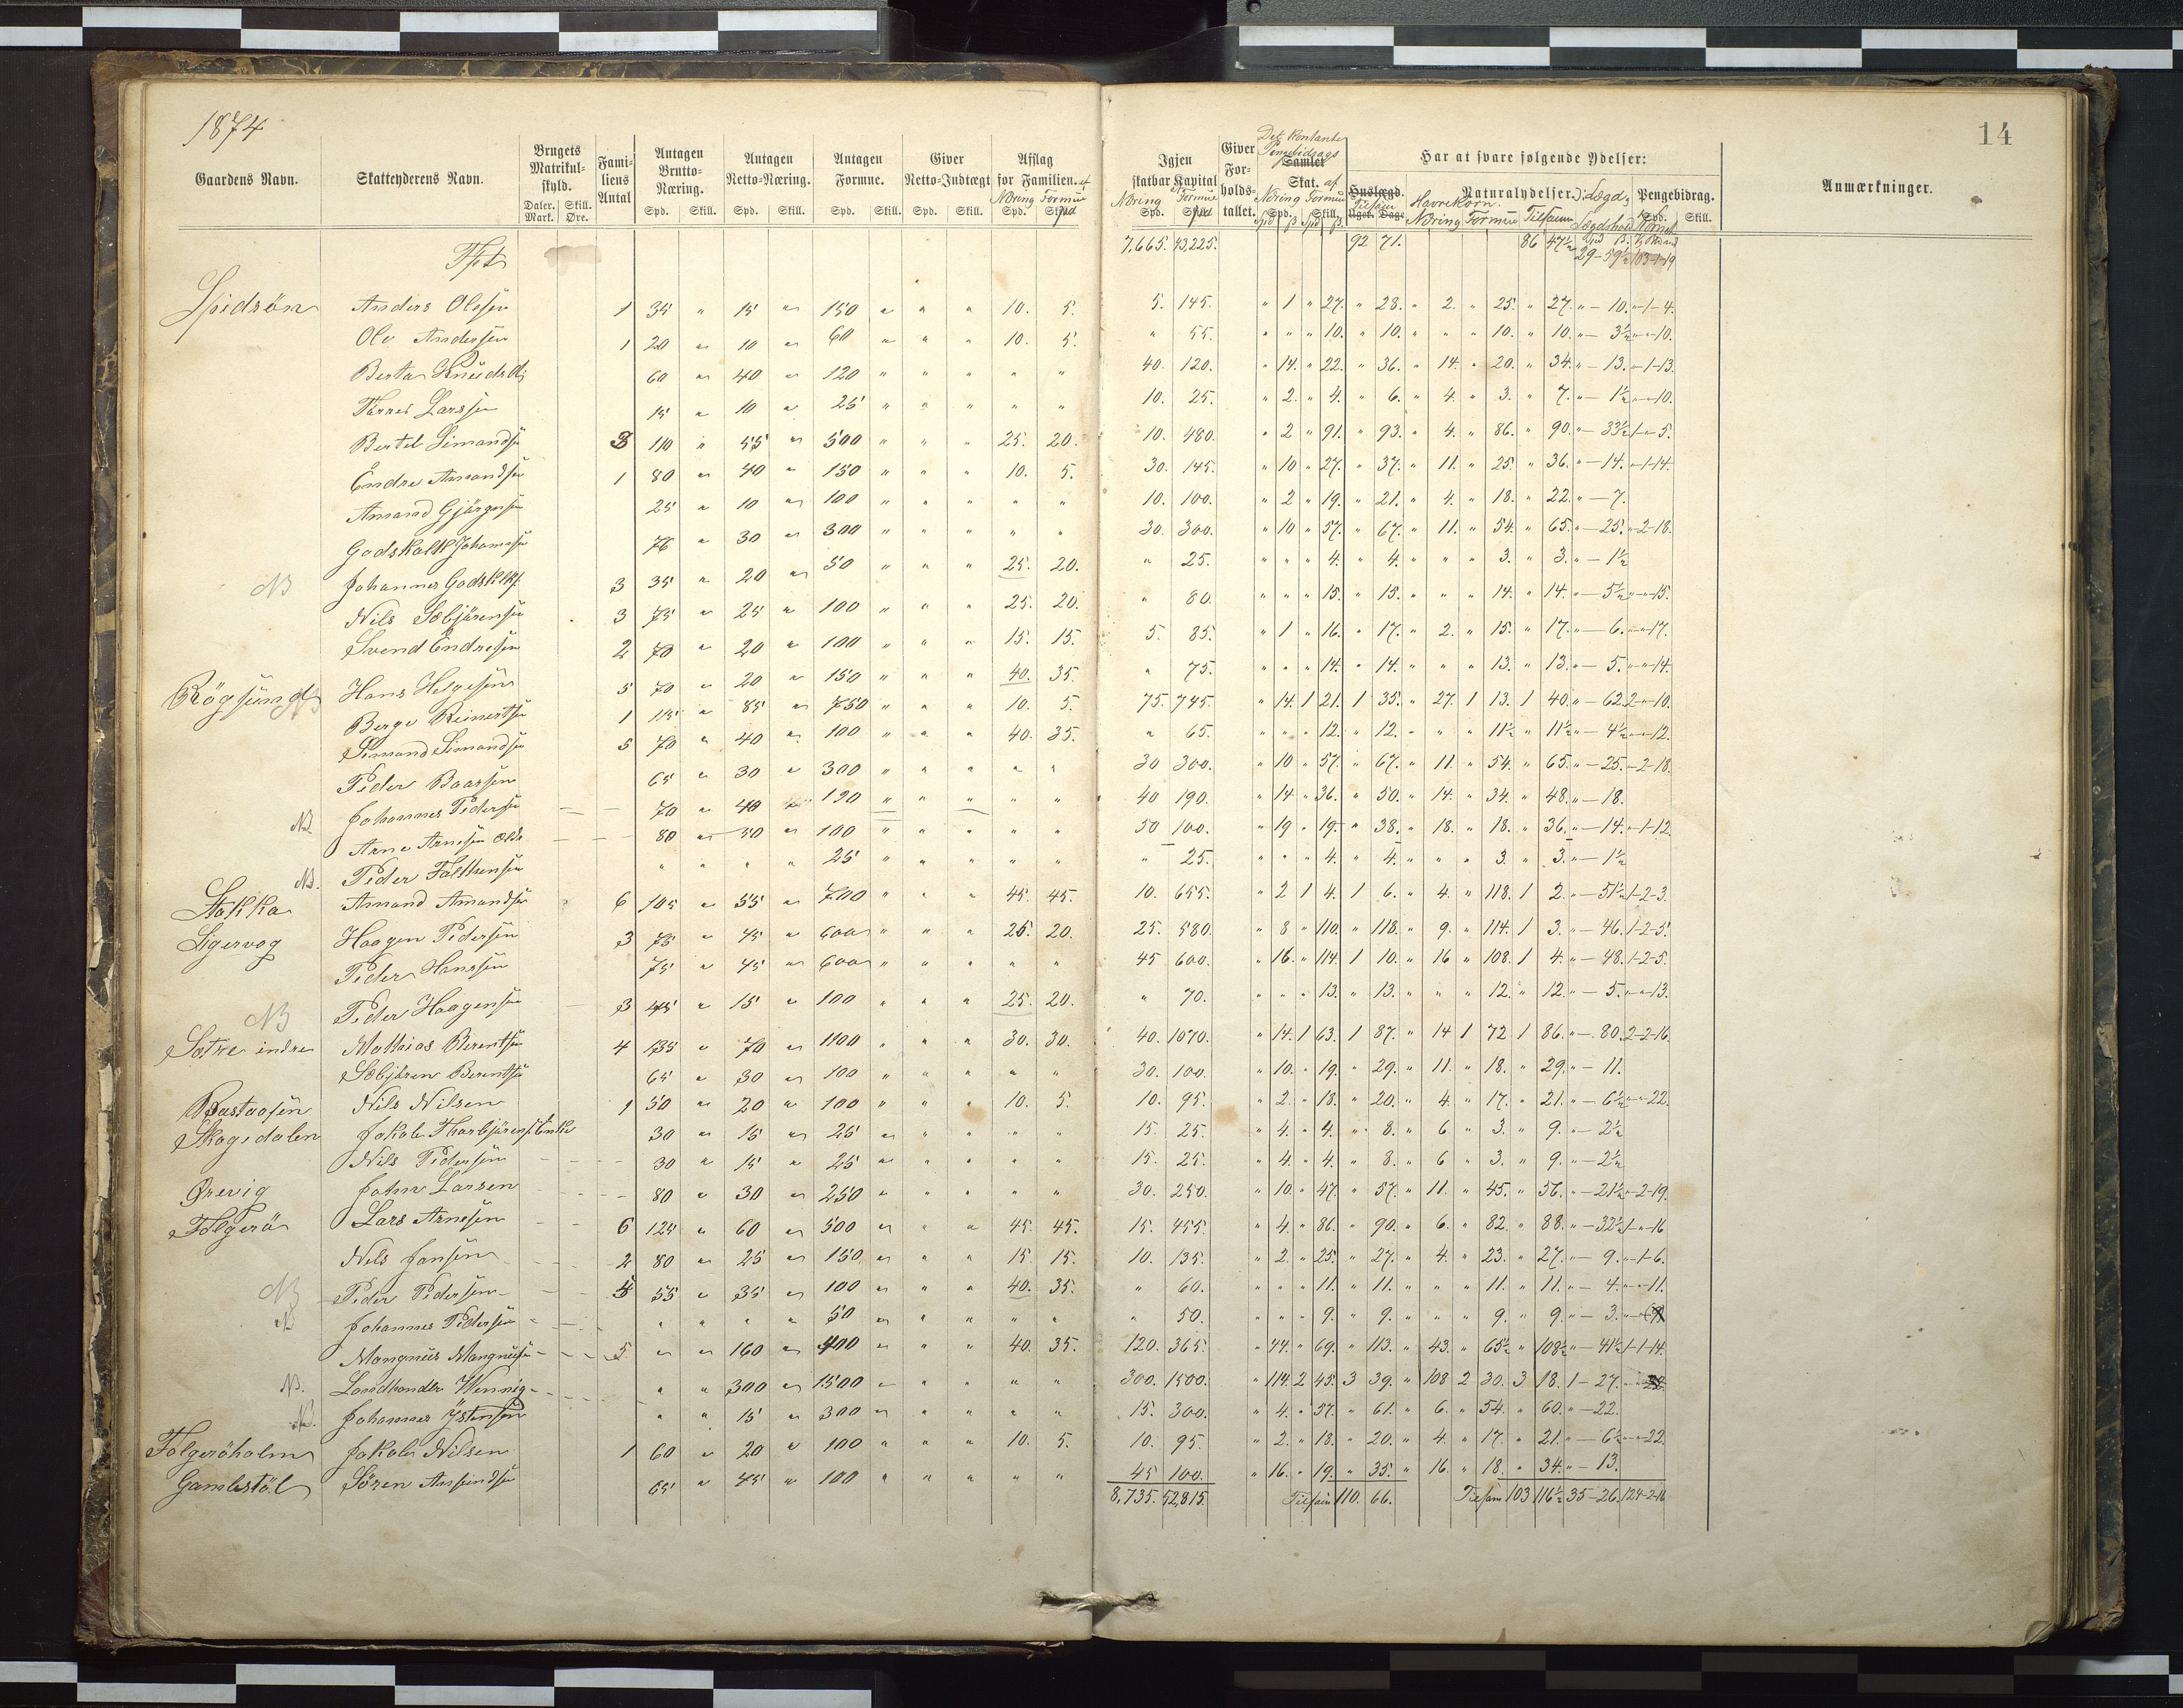 1874
14
Gaardens Navn. Skatteyderens Navn. Brugets Matrikulskyld. Daler. Mark. Skill. Øre. Familiens Antal Antagen Brutto-Næring. Spd. Skill. Antagen Netto-Næring. Spd. Skill. Antagen Formue. Spd. Skill. Giver Netto-Indtægt Spd. Skill. Afslag for Familien. af Næring Formue Spd. Spd
Igjen skatbar Kapital af Næring Formue Spd. Spd Giver Forholdstallet. Det kontante Pengebidrags Samlet Skat. af Næring Formue Spd. Skill. Huslægd. Tilsam Uger. Dage Har at svare følgende Ydelser: Naturalydelser. Havrekorn. Næring Formue Tilsam Lægd Pengebidrag. Spd. Skill. Anmærkninger.
Tpt 7,665. 43,225. 92 71. 86 47½ 29-59½ 103-1-19
Spidsøn Anders Olsen 1 35 " 15 " 150 " " " 10. 5. 5. 145. " 1 " 27. " 28. " 2. " 25. " 27. " - 10. "-1-4.
Ole Andersen 1 20 " 10 " 60 " " " 10. 5. " 55. " " " 10. " 10. " " " 10. " 10. " - 3½ "-"-10.
Berta Knudsd. 60 " 40 " 120 " " " " " 40. 120. " 14. " 22. " 36. " 14. " 20. " 34. " - 13. "-1-13.
Tørres Larssen 15 " 10 " 25 " " " " " 10. 25. " 2. " 4. " 6. " 4. " 3. " 7. " - 1½ "-"-10.
Bertel Simonds. 3 110 " 55 " 500 " " " 25. 20. 10. 480. " 2 " 91. " 93. " 4. " 86. " 90. " - 33½ 1-"-5.
Endre Amandsen 1 80 " 40 " 150 " " " 10. 5. 30. 145. " 10 " 27. " 37. " 11. " 25. " 36. " - 14. "-1-14.
Amand Gjärgesen 25 " 10 " 100 " " " " " 10. 100. " 2 " 19. " 21. " 4. " 18. " 22. " - 7.
Godskalk Johannesen 76 " 30 " 300 " " " " " 30. 300. " 10 " 57. " 67. " 11. " 54. " 65. " - 25. "-2-18.
NB Johannes Godsk. 3 35 " 20 " 50 " " " 25. 20. " 25. " " " 4. " 4. " " " 3. " 3. " - 1½
Nils Sæbjørensen 3 75 " 25 " 100 " " " 25. 20. " 80. " " " 15. " 15. " " " 14. " 14. " - 5½ "-"-15.
Svend Endresen 2 70 " 20 " 100 " " " 15. 15. 5. 85. " 1 " 16. " 17. " 2. " 15. " 17. " - 6. "-"-17.
Rögsund NB Hans Helgesen 5 70 " 20 " 150 " " " 40. 35. " 75. " " " 14. " 14. " " " 13. " 13. " - 5. "-"-14.
Berge Reinertsen 1 115 " 85 " 750 " " " 10. 5. 75. 745. " 14. 1 21. 1 35. " 27. 1 13. 1 40. " - 62. 2-"-10.
Simond Simondsen 5 70 " 40 " 100 " " " 40. 35. " 65. " " " 12. " 12. " " " 11½ " 11½ " - 4½ "-"-12.
Peder Baarsen 65 " 30 " 300 " " " " " 30 300. " 10 " 57. " 67. " 11. " 54. " 65. " - 25. "-2-18.
NB Johannes Pedersen 70 " 40 " 190 " " " " " 40 190. " 14 " 36. " 50. " 14. " 34. " 48. " - 18.
Arne Arnesen Oldr 80 " 50 " 100 " " " " " 50 100. " 19 " 19. " 38. " 18. " 18. " 36. " - 14. "-1-12.
NB. Peder " " " " 25 " " " " " " 25. " " " 4. " 4. " " " 3. " 3. " - 1½
Stokka Amand Amandsen 6 105 " 55 " 700 " " " 45. 45. 10. 655. " 2 1 4. 1 6. " 4. " 118. 1 2. " - 51½ 1-2-3.
Sigervog Haagen Pedersen 3 75 " 45 " 600 " " " 25. 20. 25. 580. " 8 " 110. " 118. " 9. " 114. 1 3. " - 46. 1-2-5.
Peder Hanssen 75 " 45 " 600 " " " " " 45 600. " 16. " 114. 1 10. " 16 " 108. 1 4. " - 48. 1-2-5.
NB Peder Haagensen 3 45 " 15 " 100 " " " 25. 20. " 70. " " " 13. " 13. " " " 12. " 12. " - 5. "-"-13.
Sætre indre Mathias Berentsen 4 135 " 70 " 1100 " " " 30. 30. 40. 1070. " 14. 1 63. 1 87. " 14 1 72 1 86. " - 80. 2-2-16.
Sæbjören Berentsen 65 " 30 " 100 " " " " " 30. 100. " 10. " 19. " 29. " 11. " 18. " 29. " - 11.
Rastaasen Nils Nilsen 1 50 " 20 " 100 " " " 10. 5. 10. 95. " 2. " 18. " 20. " 4. " 17. " 21. " - 6½ "-"-22.
Skogsdalen Jakob Thorbjörens. Enke 30 " 15 " 25 " " " " " 15. 25. " 4. " 4. " 8. " 6 " 3. " 9. " - 2½
Nils Pedersen 30 " 15 " 25 " " " " " 15. 25. " 4. " 4. " 8. " 6 " 3. " 9. " - 2½
Ørevig John Larsen 80 " 30 " 250 " " " " " 30. 250. " 10. " 47. " 57. " 11. " 45. " 56. " - 21½ "-2-19.
Folgerö Lars Arnesen 6 125 " 60 " 500 " " " 45. 45. 15. 455. " 4. " 86. " 90. " 6. " 82. " 88. " - 32½ 1-"-16
Nils Jansen 2 80 " 25 " 150 " " " 15 15. 10. 135. " 2. " 25. " 27. " 4. " 23. " 27. " - 9. "-1-6.
NB Peder Pedersen 5 55 " 35 " 100 " " " 40. 35. " 60. " " " 11. " 11. " " " 11. " 11. " - 4. "-"-11.
NB Johannes Pedersen " " " " 50 " " " " " " 50. " " " 9. " 9. " " " 9. " 9. " - 3. "-"-9
Mangnus Mangnus. 5 " " 160 " 400 " " " 40. 35. 120. 365. " 44. " 69. " 113. " 43. " 65½ " 108½ " - 41½ 1-1-14.
NB. Landhandler Wennig " " 300 " 1500 " " " " " 300. 1500. " 114. 2 45. 3 39. " 108 2 30. 3 18. 1 - 27.
NB. Johannes Ystensen " " 15 " 300 " " " " " 15. 300. " 4. " 57. " 61. " 6. " 54. " 60. " - 22.
Folgeröholm Jakob Nilsen 1 60 " 20 " 100 " " " 10. 5. 10. 95. " 2. " 18. " 20. " 4. " 17. " 21. " - 6½ "-"-22.
Gamlestöl Sören Amundsen 65 " 45 " 100 " " " " " 45 100. " 16. " 19. " 35. " 16. " 18. " 34. " - 13.
8,735. 52,815. Tilsam 110. 66. Tilsam 103 116½ 35-26. 124-2-16